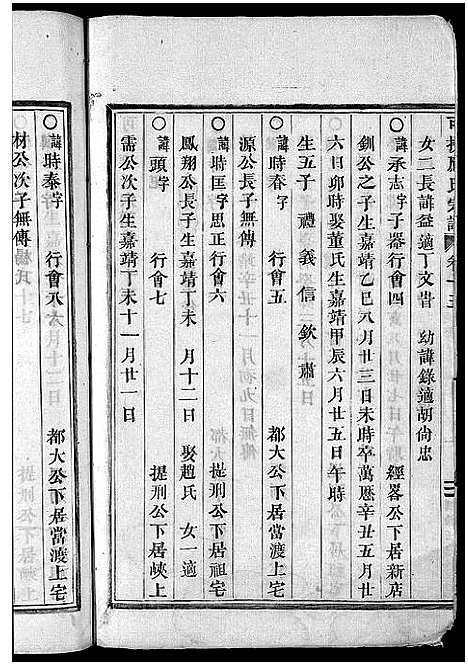 女二長諱益適丁文昔　幼諱錄適胡尙忠
〇諱承志字子器行會四　經畧公下居新店
釧公之子生嘉靖乙巳八月廿三日未時卒萬厯辛丑五月廿
六日卯時娶董氏生嘉靖甲辰六月廿五日午時
生五子　禮　義　信　欽　肅
〇諱時春字　行會五　都大公下居當渡上宅
源公長子無傳
〇諱時匡字思正行會六　提刑公下居祖宅
鳳翔公長子生嘉靖丁未　月十二日　娶趙氏　女一適
〇諱頭字　行會七　提刑公下居峽上
需公次子生嘉靖丁未十一月廿一日
〇諱時泰字　行會八　都大公下居當渡上宅
材公次子無傳